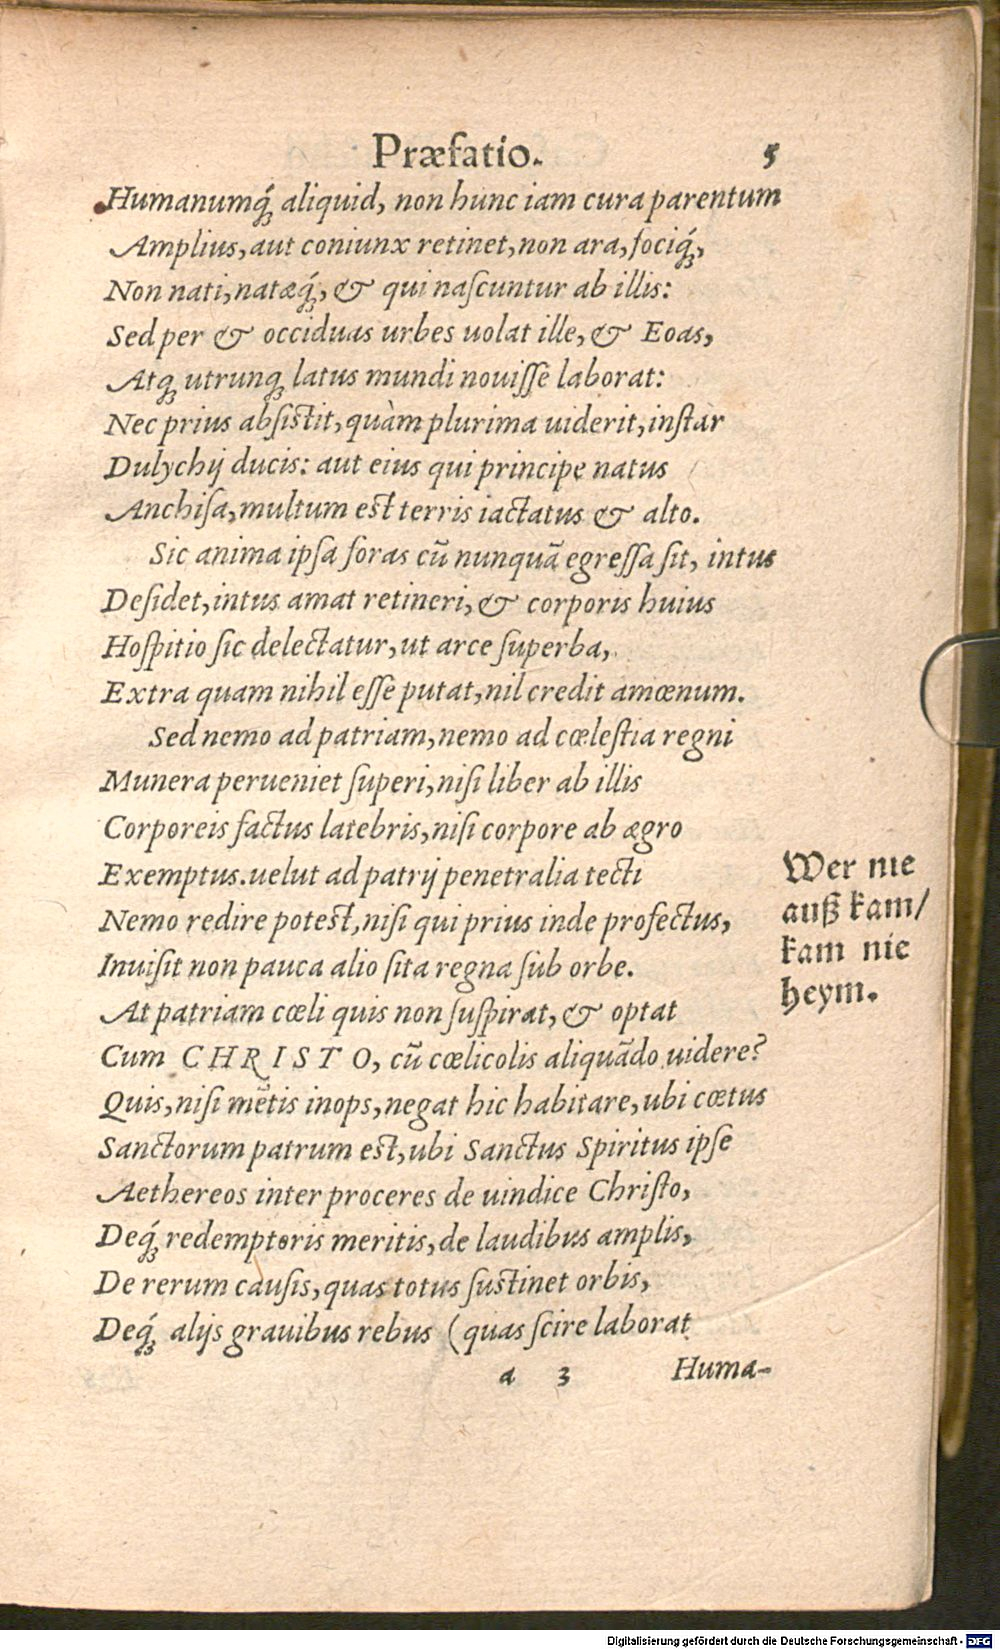 Præfatio. 5
Humanumq́; aliquid, non hunc iam cura parentum
Amplius, aut coniunx retinet, non ara, fociq́;,
Non nati, natæq́;, & qui naſcuntur ab illis:
Sed per & occiduas urbes uolat ille, & Eoas,
Atq; utrunq; latus mundi nouiſſe laborat:
Nec prius abſistit, quàm plurima uiderit, inſtar
Dulychij ducis: aut eius qui principe natus
Anchiſa, multum est terris iactatus & alto.
Sic anima ipſa foras cū nunquã egreſſa ſit, intus
Deſidet, intus amat retineri, & corporis huius
Hoſpitio ſic delectatur, ut arce ſuperba,
Extra quam nihil eſſe putat, nil credit amœnum.
Sed nemo ad patriam, nemo ad cœleſtia regni
Munera perueniet ſuperi, niſi liber ab illis
Corporeis factus latebris, niſi corpore ab ægro
Exemptus. uelut ad patrij penetralia tecti
Nemo redire potest, niſi qui prius inde profectus,
Inuiſit non pauca alio ſita regna ſub orbe.
At patriam cœli quis non ſuſpirat, & optat
Cum CHRISTO, cū cœlicolis aliquãdo uidere?
Quis, niſi mẽtis inops, negat hic habitare, ubi cœtus
Sanctorum patrum est, ubi Sanctus Spiritus ipſe
Aethereos inter proceres de uindice Chriſto,
Deq́; redemptoris meritis, de laudibus amplis,
De rerum cauſis, quas totus ſustinet orbis,
Deq́; alijs grauibus rebus (quas ſcire laborat
a 3 Huma-
Wer nie
auß kam/
kam nie
heym.
Digitalisierung gefördert durch die Deutsche Forschungsgemeinschaft - DFG